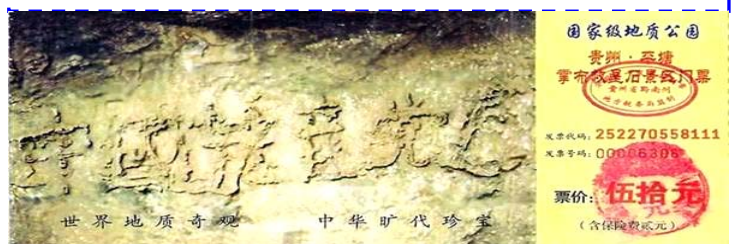 世界地质奇观 中华旷代珍宝
国家级地质公园
贵州·平塘
掌布救星石景区门票
贵州省黔南州
发票代码: 252270558111
发票号码:
票价: 伍拾元
(含保险费贰元)